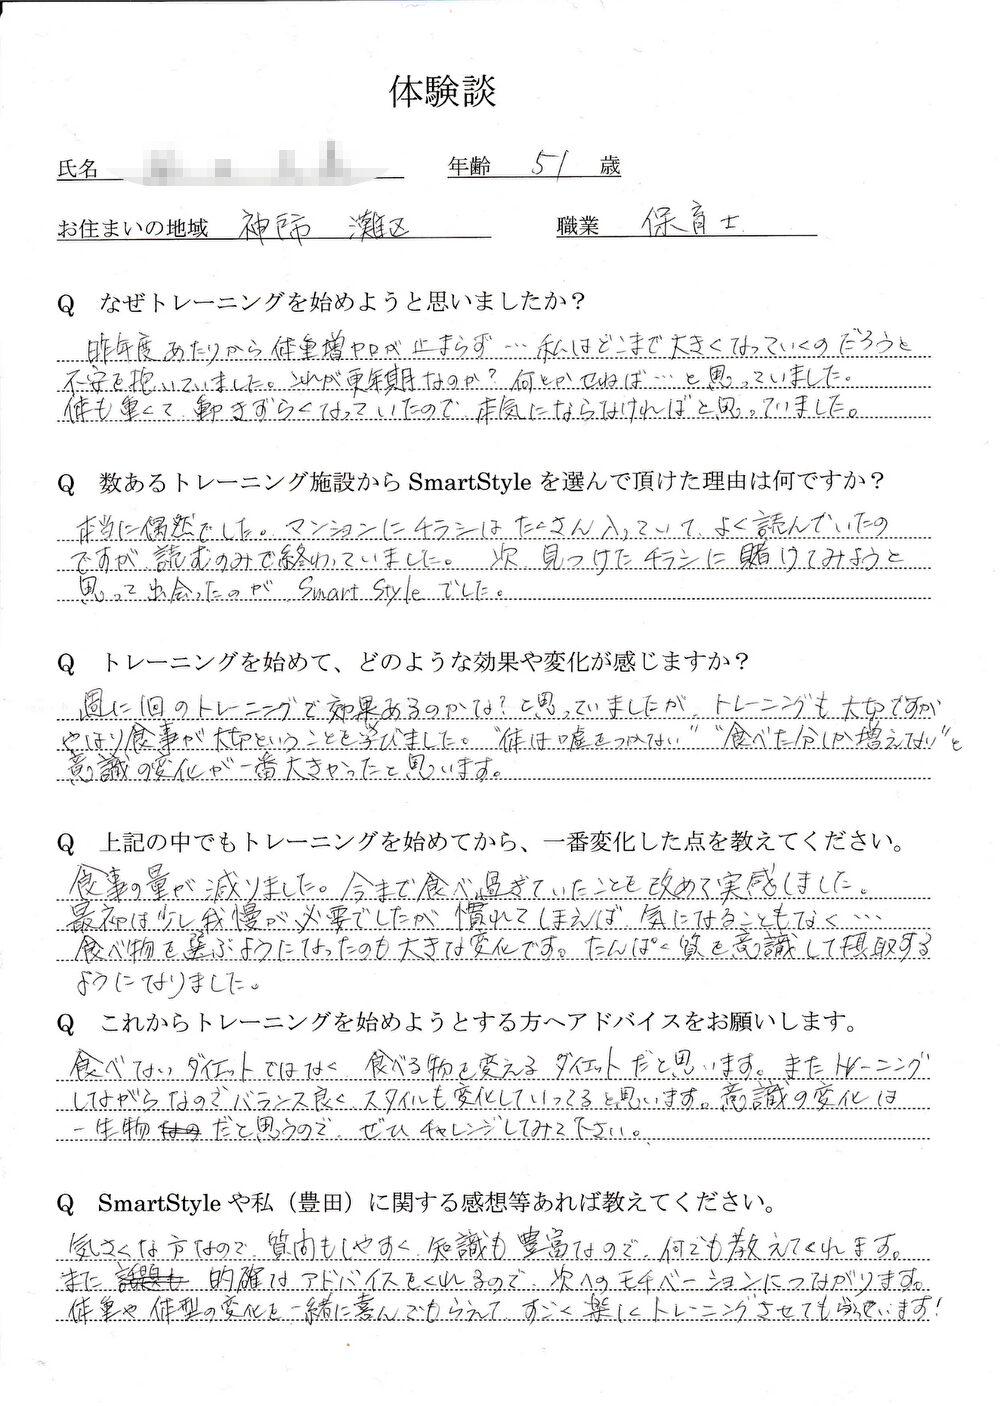 体験談
氏名 年齢 51 歳
お住まいの地域 神戸市 灘区 職業 保育士
Q なぜトレーニングを始めようと思いましたか？
昨年度あたりから体重増加が止まらず…私はどこまで大きくなっていくのだろうと
不安を抱いていました。これが更年期なのか？何とかせねば…と思っていました。
体も重くて動きずらくなっていたので、本気にならなければと思っていました。
Q 数あるトレーニング施設から SmartStyle を選んで頂けた理由は何ですか？
本当に偶然でした。マンションにチラシはたくさん入っていて、よく読んでいたの
ですが、読むのみで終わっていました。次、見つけたチラシに賭けてみようと
思って出会ったのが、Smart Styleでした。
Q トレーニングを始めて、どのような効果や変化が感じますか？
週に1回のトレーニングで効果あるのかな？と思っていましたが、トレーニングも大切ですが
やはり食事が大切ということを学びました。"体は嘘をつかない" "食べた分しか増えない"と
意識の変化が一番大きかったと思います。
Q 上記の中でもトレーニングを始めてから、一番変化した点を教えてください。
食事の量が減りました。今まで食べ過ぎていたことも改めて実感しました。
最初は少し我慢が必要でしたが、慣れてしまえば、気になることもなく…
食べ物を選ぶようになったのも大きな変化です。たんぱく質を意識して摂取する
ようになりました。
Q これからトレーニングを始めようとする方へアドバイスをお願いします。
食べないダイエットではなく、食べる物を変えるダイエットだと思います。またトレーニング
しながらなのでバランス良く、スタイルも変化していってると思います。意識の変化は
一生物なの だと思うので、ぜひチャレンジしてみて下さい。
Q SmartStyle や私（豊田）に関する感想等あれば教えてください。
気さくな方なので、質問もしやすく、知識も豊富なので、何でも教えてくれます。
また 話題も 的確なアドバイスをくれるので、次へのモチベーションにつながります。
体重や体型の変化を一緒に喜んでもらえて、すごく楽しくトレーニングさせてもらっています！